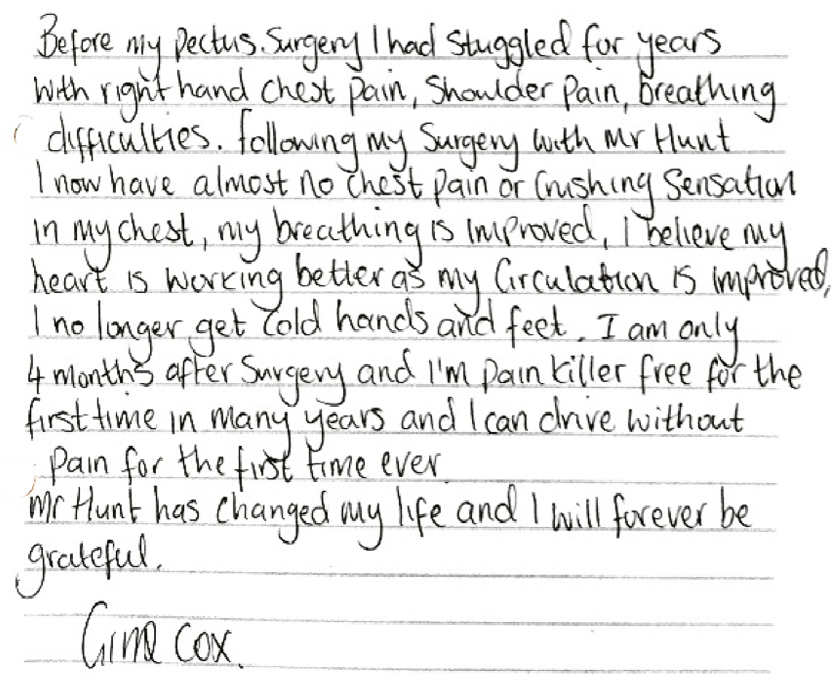 Before my Pectus. Surgery I had Stuggled for years
with right hand Chest Pain, Shoulder Pain, breathing
difficulties. Following my Surgery with Mr Hunt
I now have almost no Chest Pain or Crushing Sensation
in my chest, my breathing is improved, I believe my
heart is working better as my Circulation is improved,
I no longer get cold hands and feet. I am only
4 months after Surgery and I'm Pain killer free for the
first time in many years and I can drive without
Pain for the first time ever
Mr Hunt has changed my life and I will forever be
grateful.
Cox.